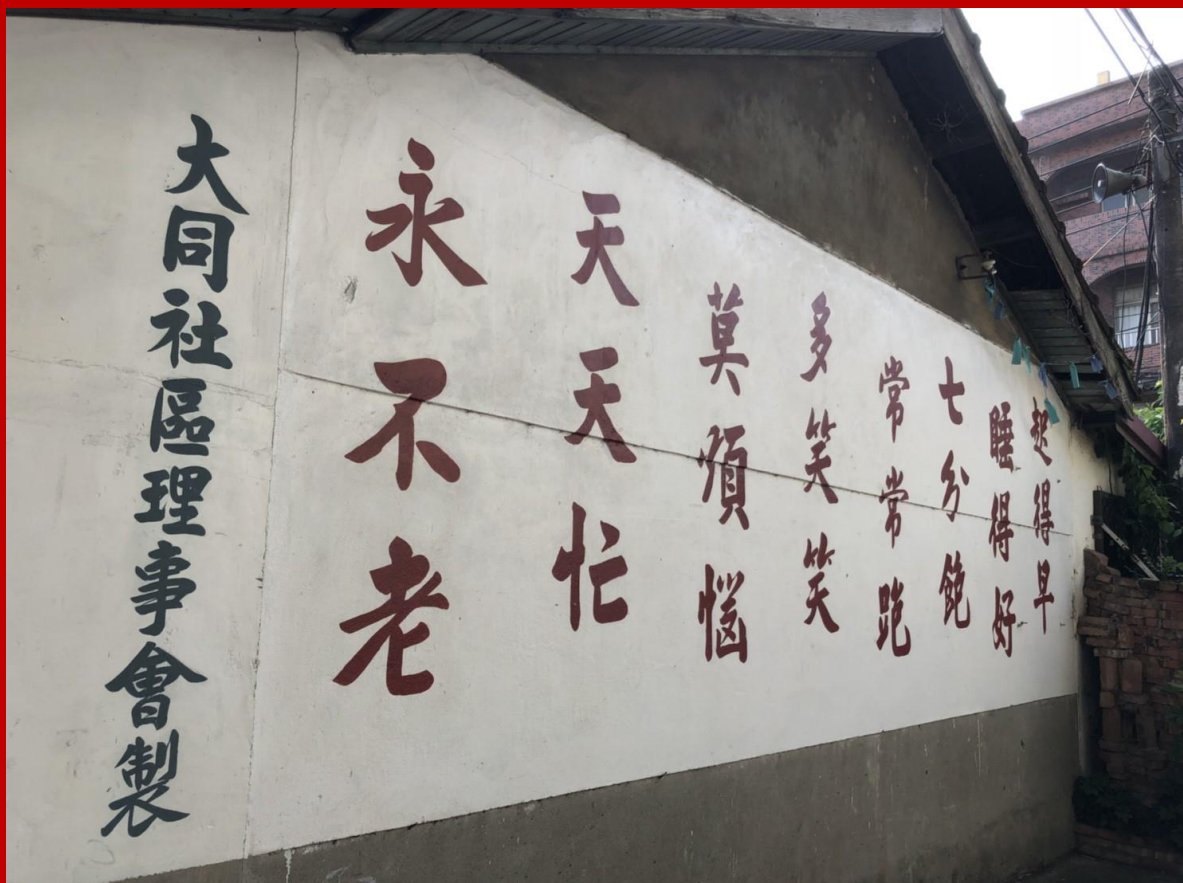 起得早
睡得好
七分飽
常常跑
多笑笑
莫煩惱
天天忙
永不老
大同社區理事會製